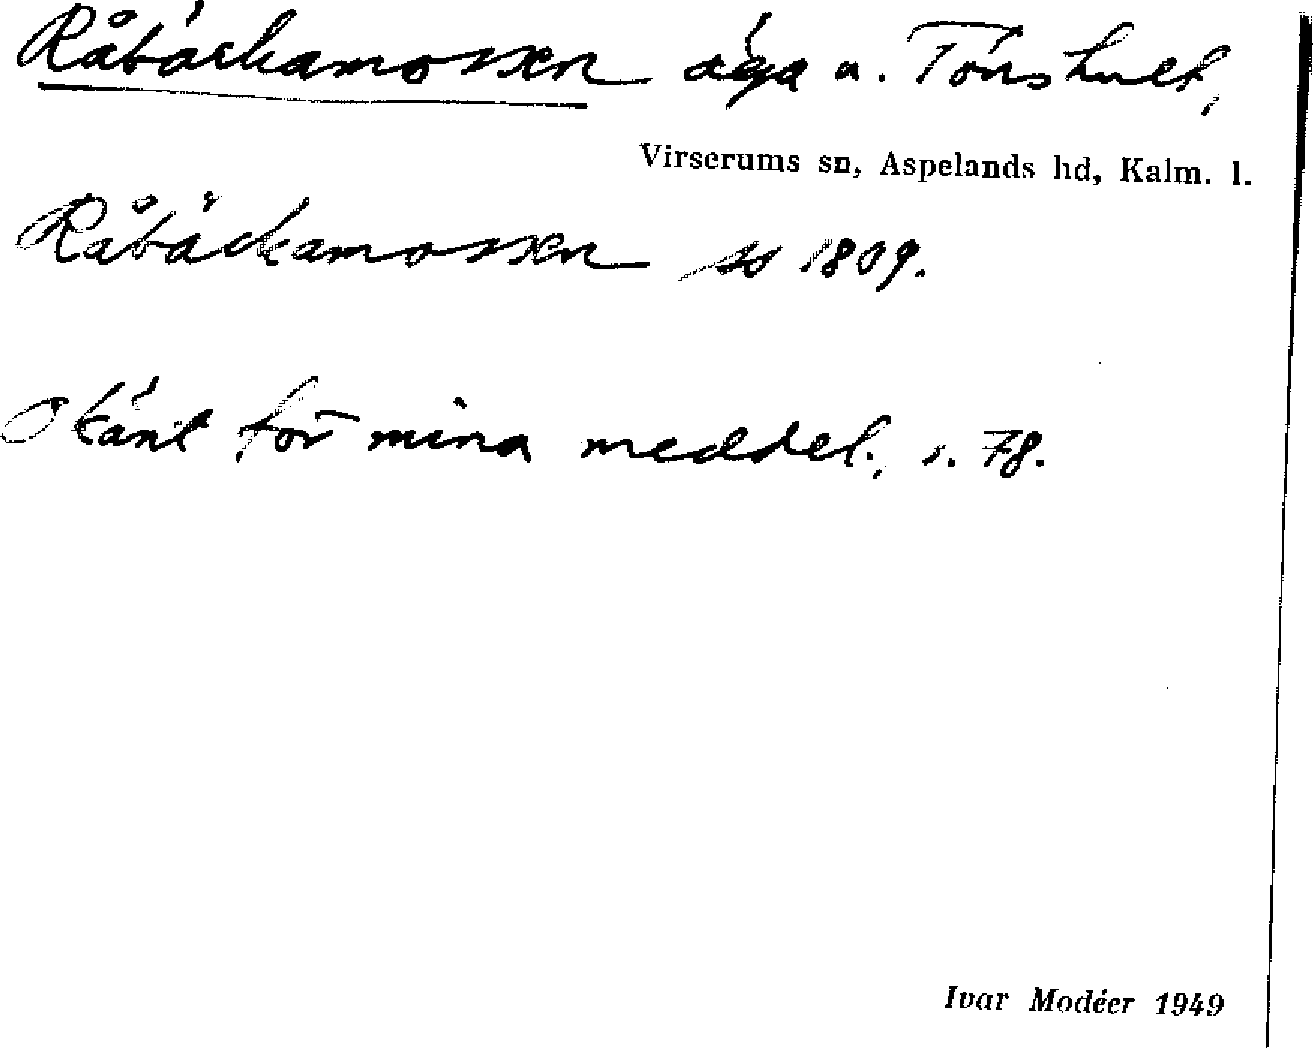 Råbäckamossen äga u. Tönshult,
Virserums sn, Aspelands hd, Kalm. l.
Råbäckamossen ss 1809.
Okänt för mina meddel., s. 78.
Ivar Modéer 1949